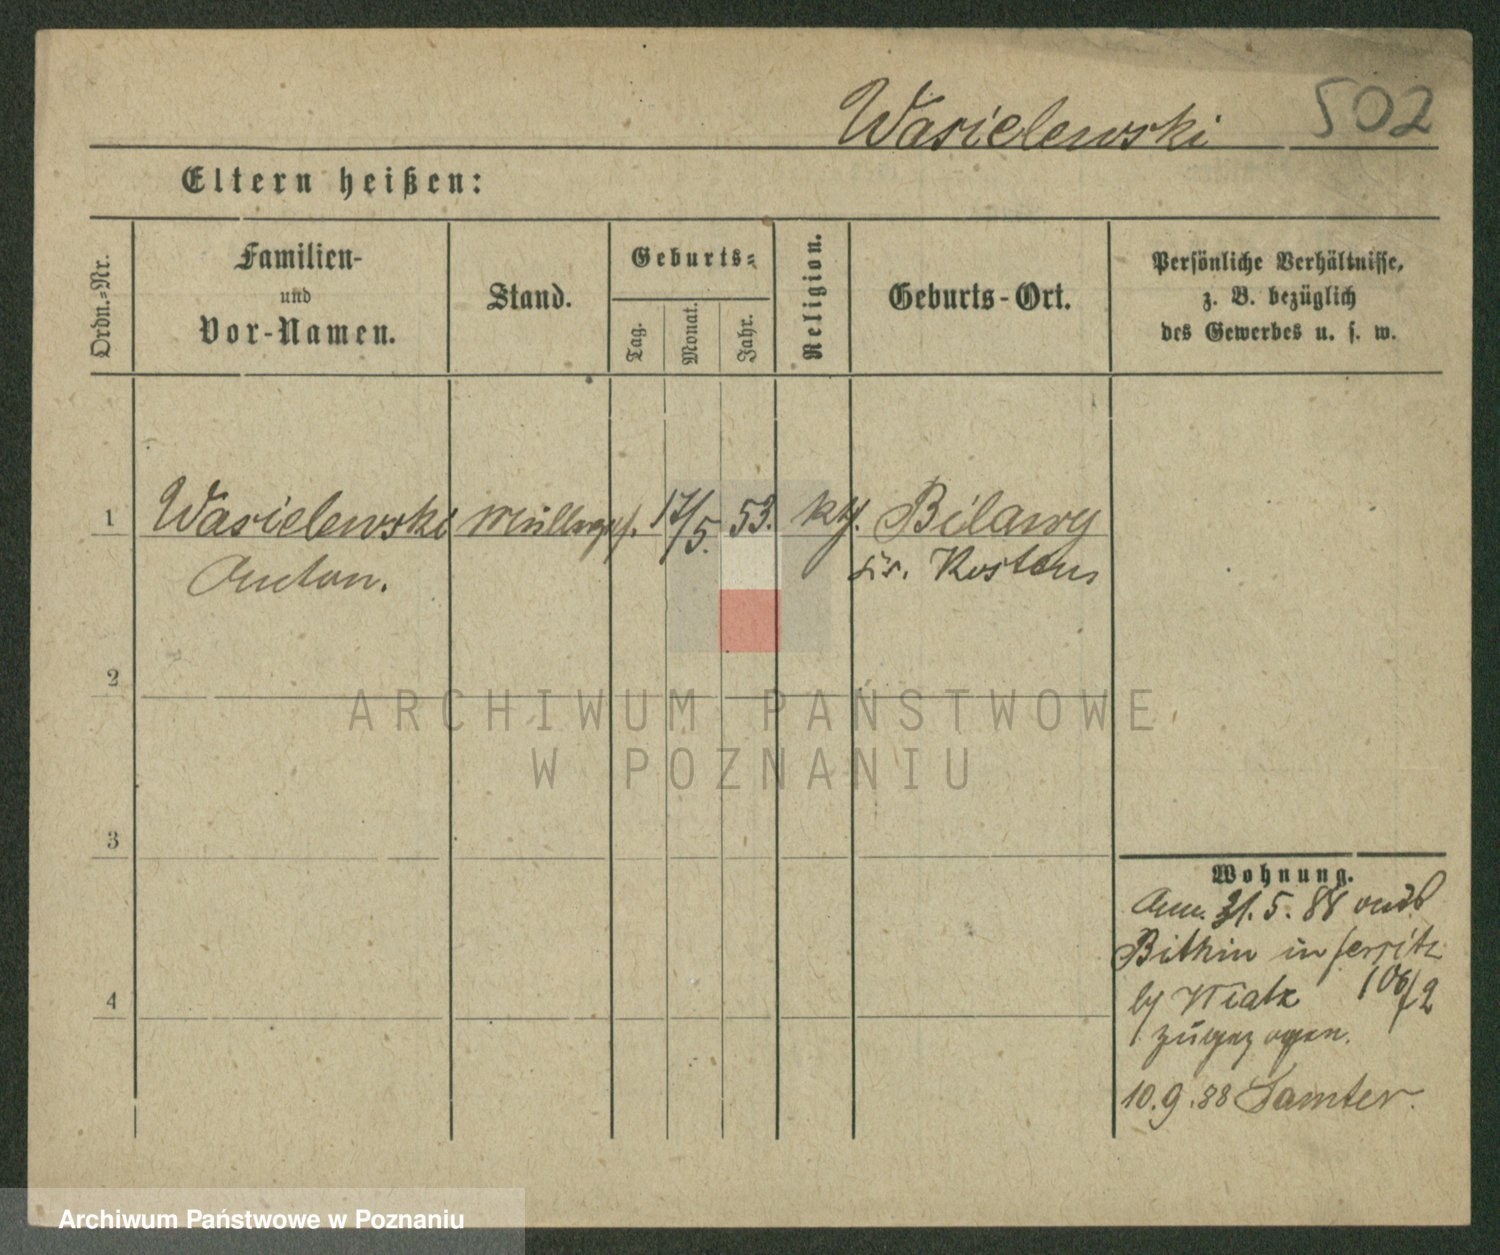 Wasielewski 502
Eltern heißen:
Ordn.=Nr.
Familien-
und
Vor-Namen.
Stand.
Geburts=
Tag.
Monat.
Jahr.
Religion.
Geburts-Ort.
Persönliche Verhältnisse,
z. B. bezüglich
des Gewerbes u. s. w.
1 Wasielewski Müllerges. 17/5. 53. kth. Bilawy
Anton. Kosten
2
ARCHIWUM PAŃSTWOWE
W POZNANIU
3
Wohnung.
31.5.88
in Jersitz
4 106/2
zugezogen.
10.9.88 Samter.
Archiwum Państwowe w Poznaniu